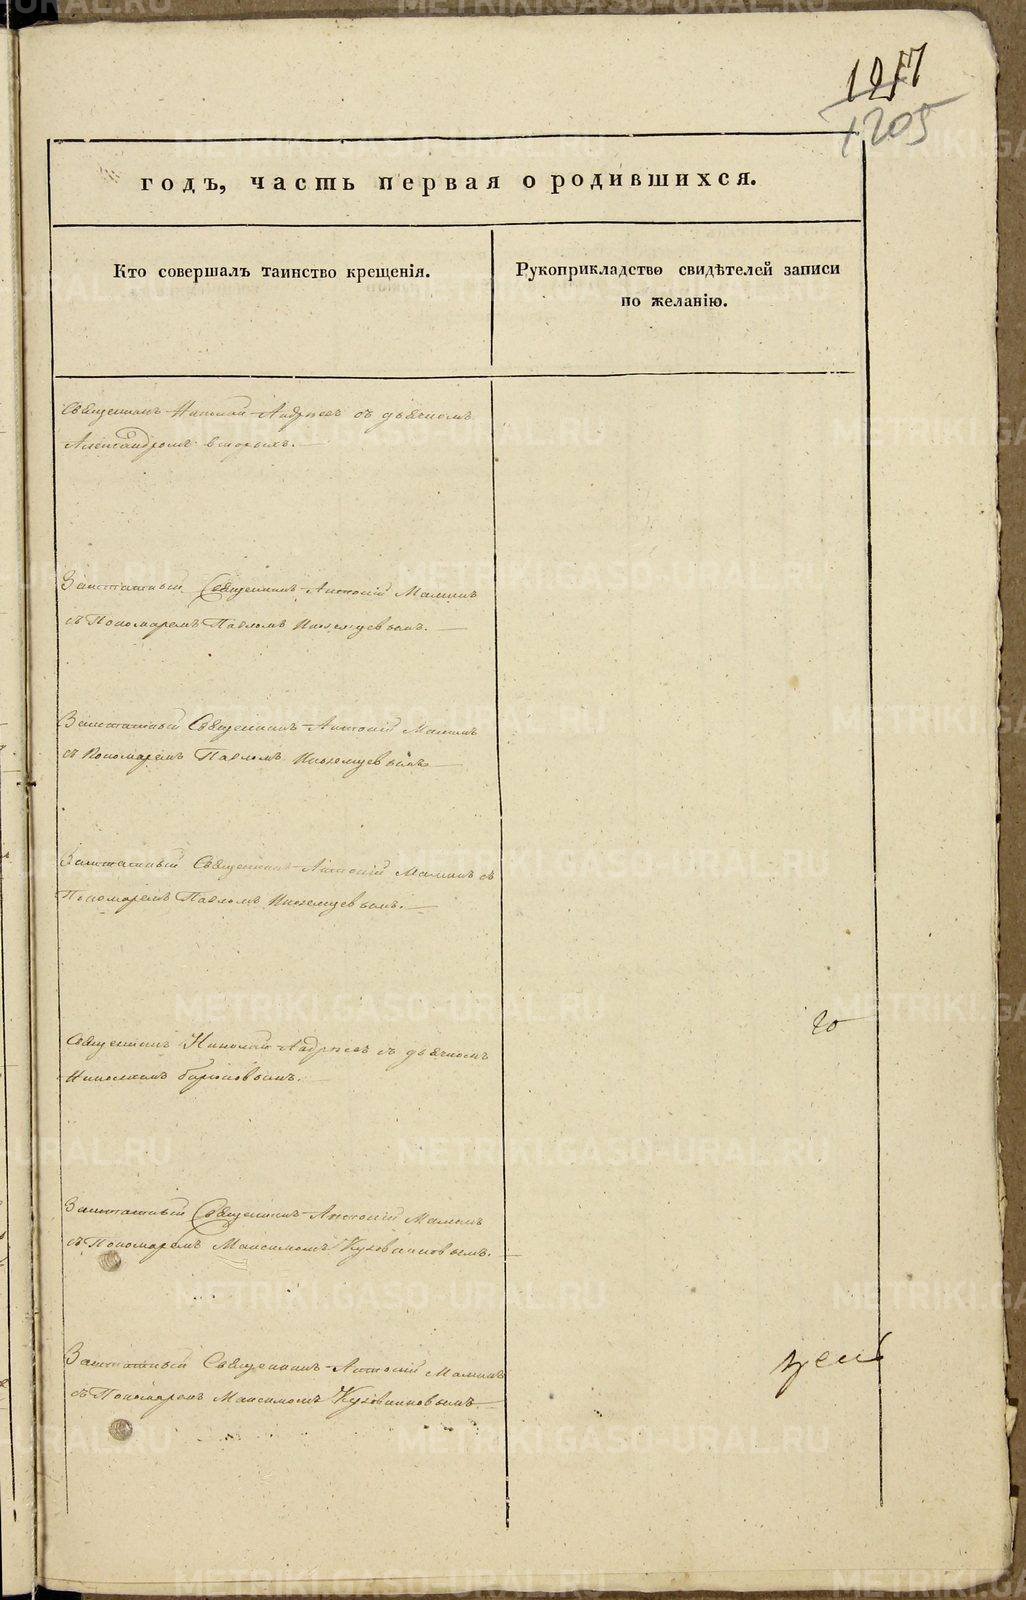 1217
1205
годъ, часть первая о родившихся.
Кто совершалъ таинство крещенія.
Рукоприкладство свидѣтелей записи
по желанію.
Священникъ Николай Андреевъ съ дьячкомъ
Александромъ
Заштатный Священникъ Антоній Маминъ
съ Пономаремъ Павломъ Иноземцевымъ.
Заштатный Священникъ Антоній Маминъ
съ Пономаремъ Павломъ Иноземцевымъ
Заштатный Священникъ Антоній Маминъ съ
Пономаремъ Павломъ Иноземцевымъ.
Священникъ Николай Андреевъ съ дьячкомъ
Заштатный Священникъ Антоній Маминъ
съ Пономаремъ Максимомъ Кузовниковымъ.
Заштатный Священникъ Антоній Маминъ
съ Пономаремъ Максимомъ Кузовниковымъ
METRIKI.GASO-URAL.RU